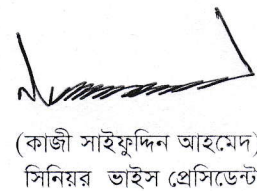 (কাজী সাইফুদ্দিন আহমেদ)
সিনিয়র ভাইস প্রেসিডেন্ট